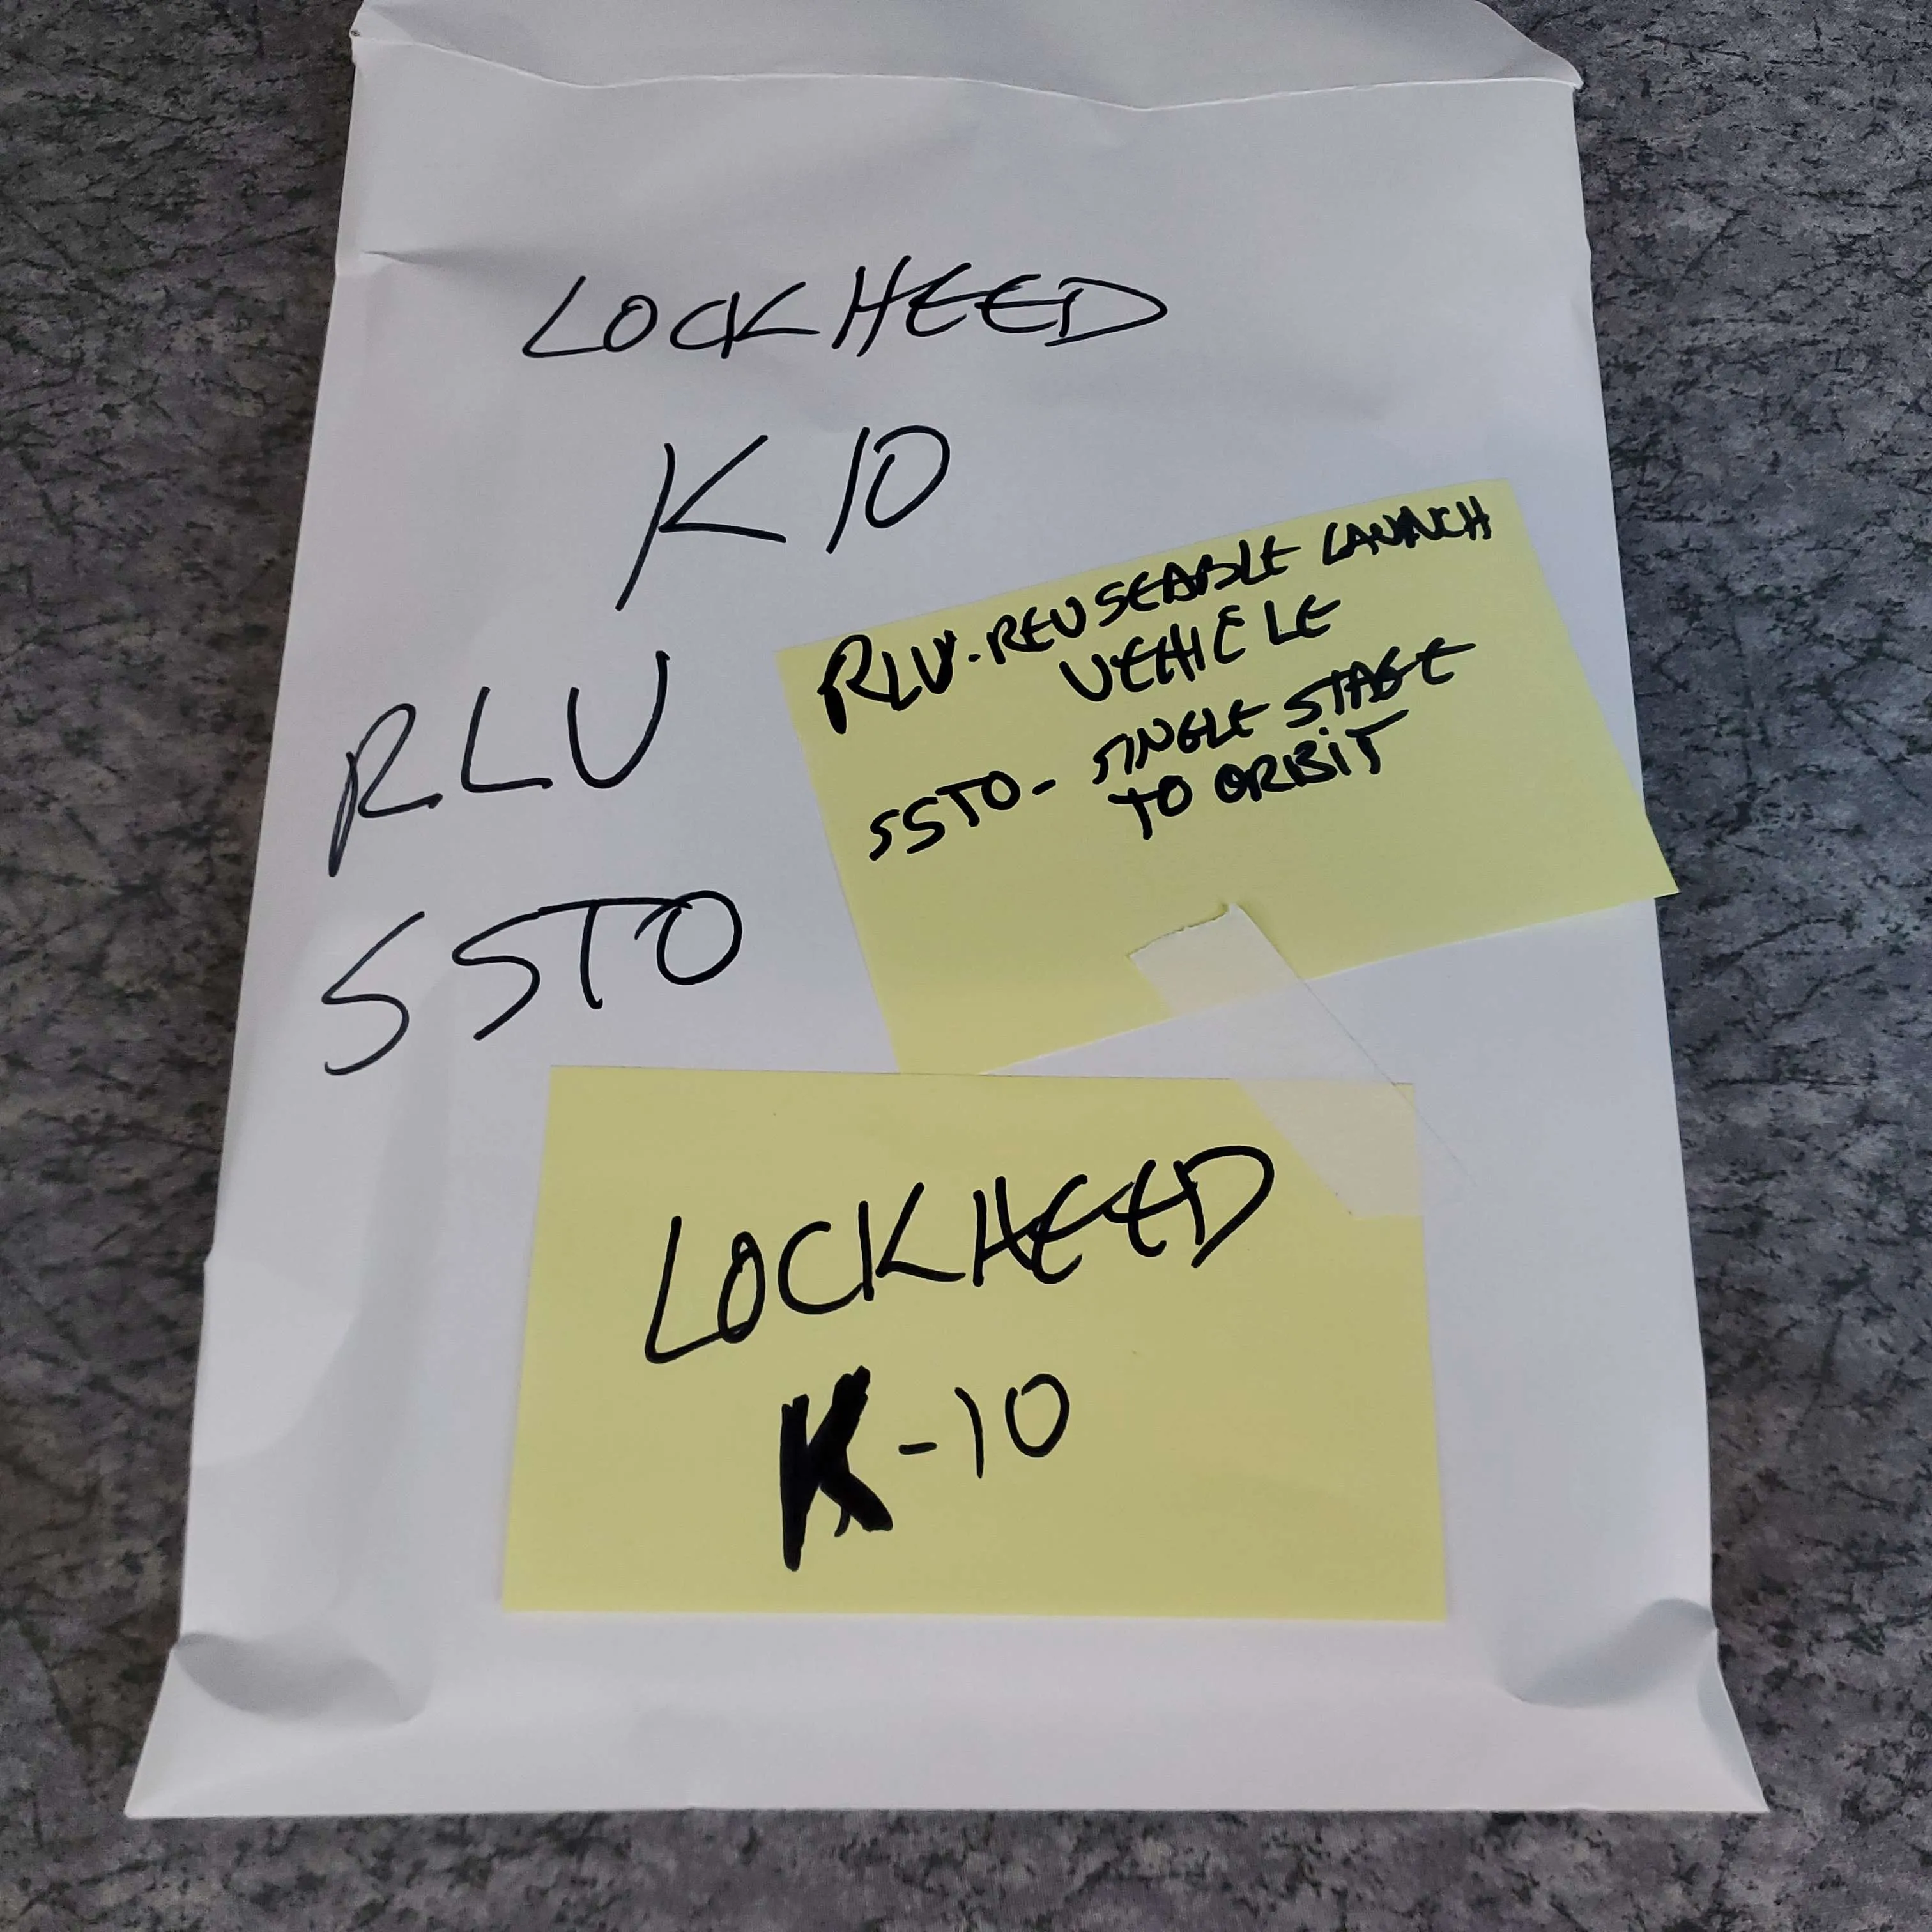 LOCKHEED
K10
RLV
SSTO
RLV-REUSEABLE LAUNCH
VEHICLE
SSTO- SINGLE STAGE
TO ORBIT
LOCKHEED
K-10